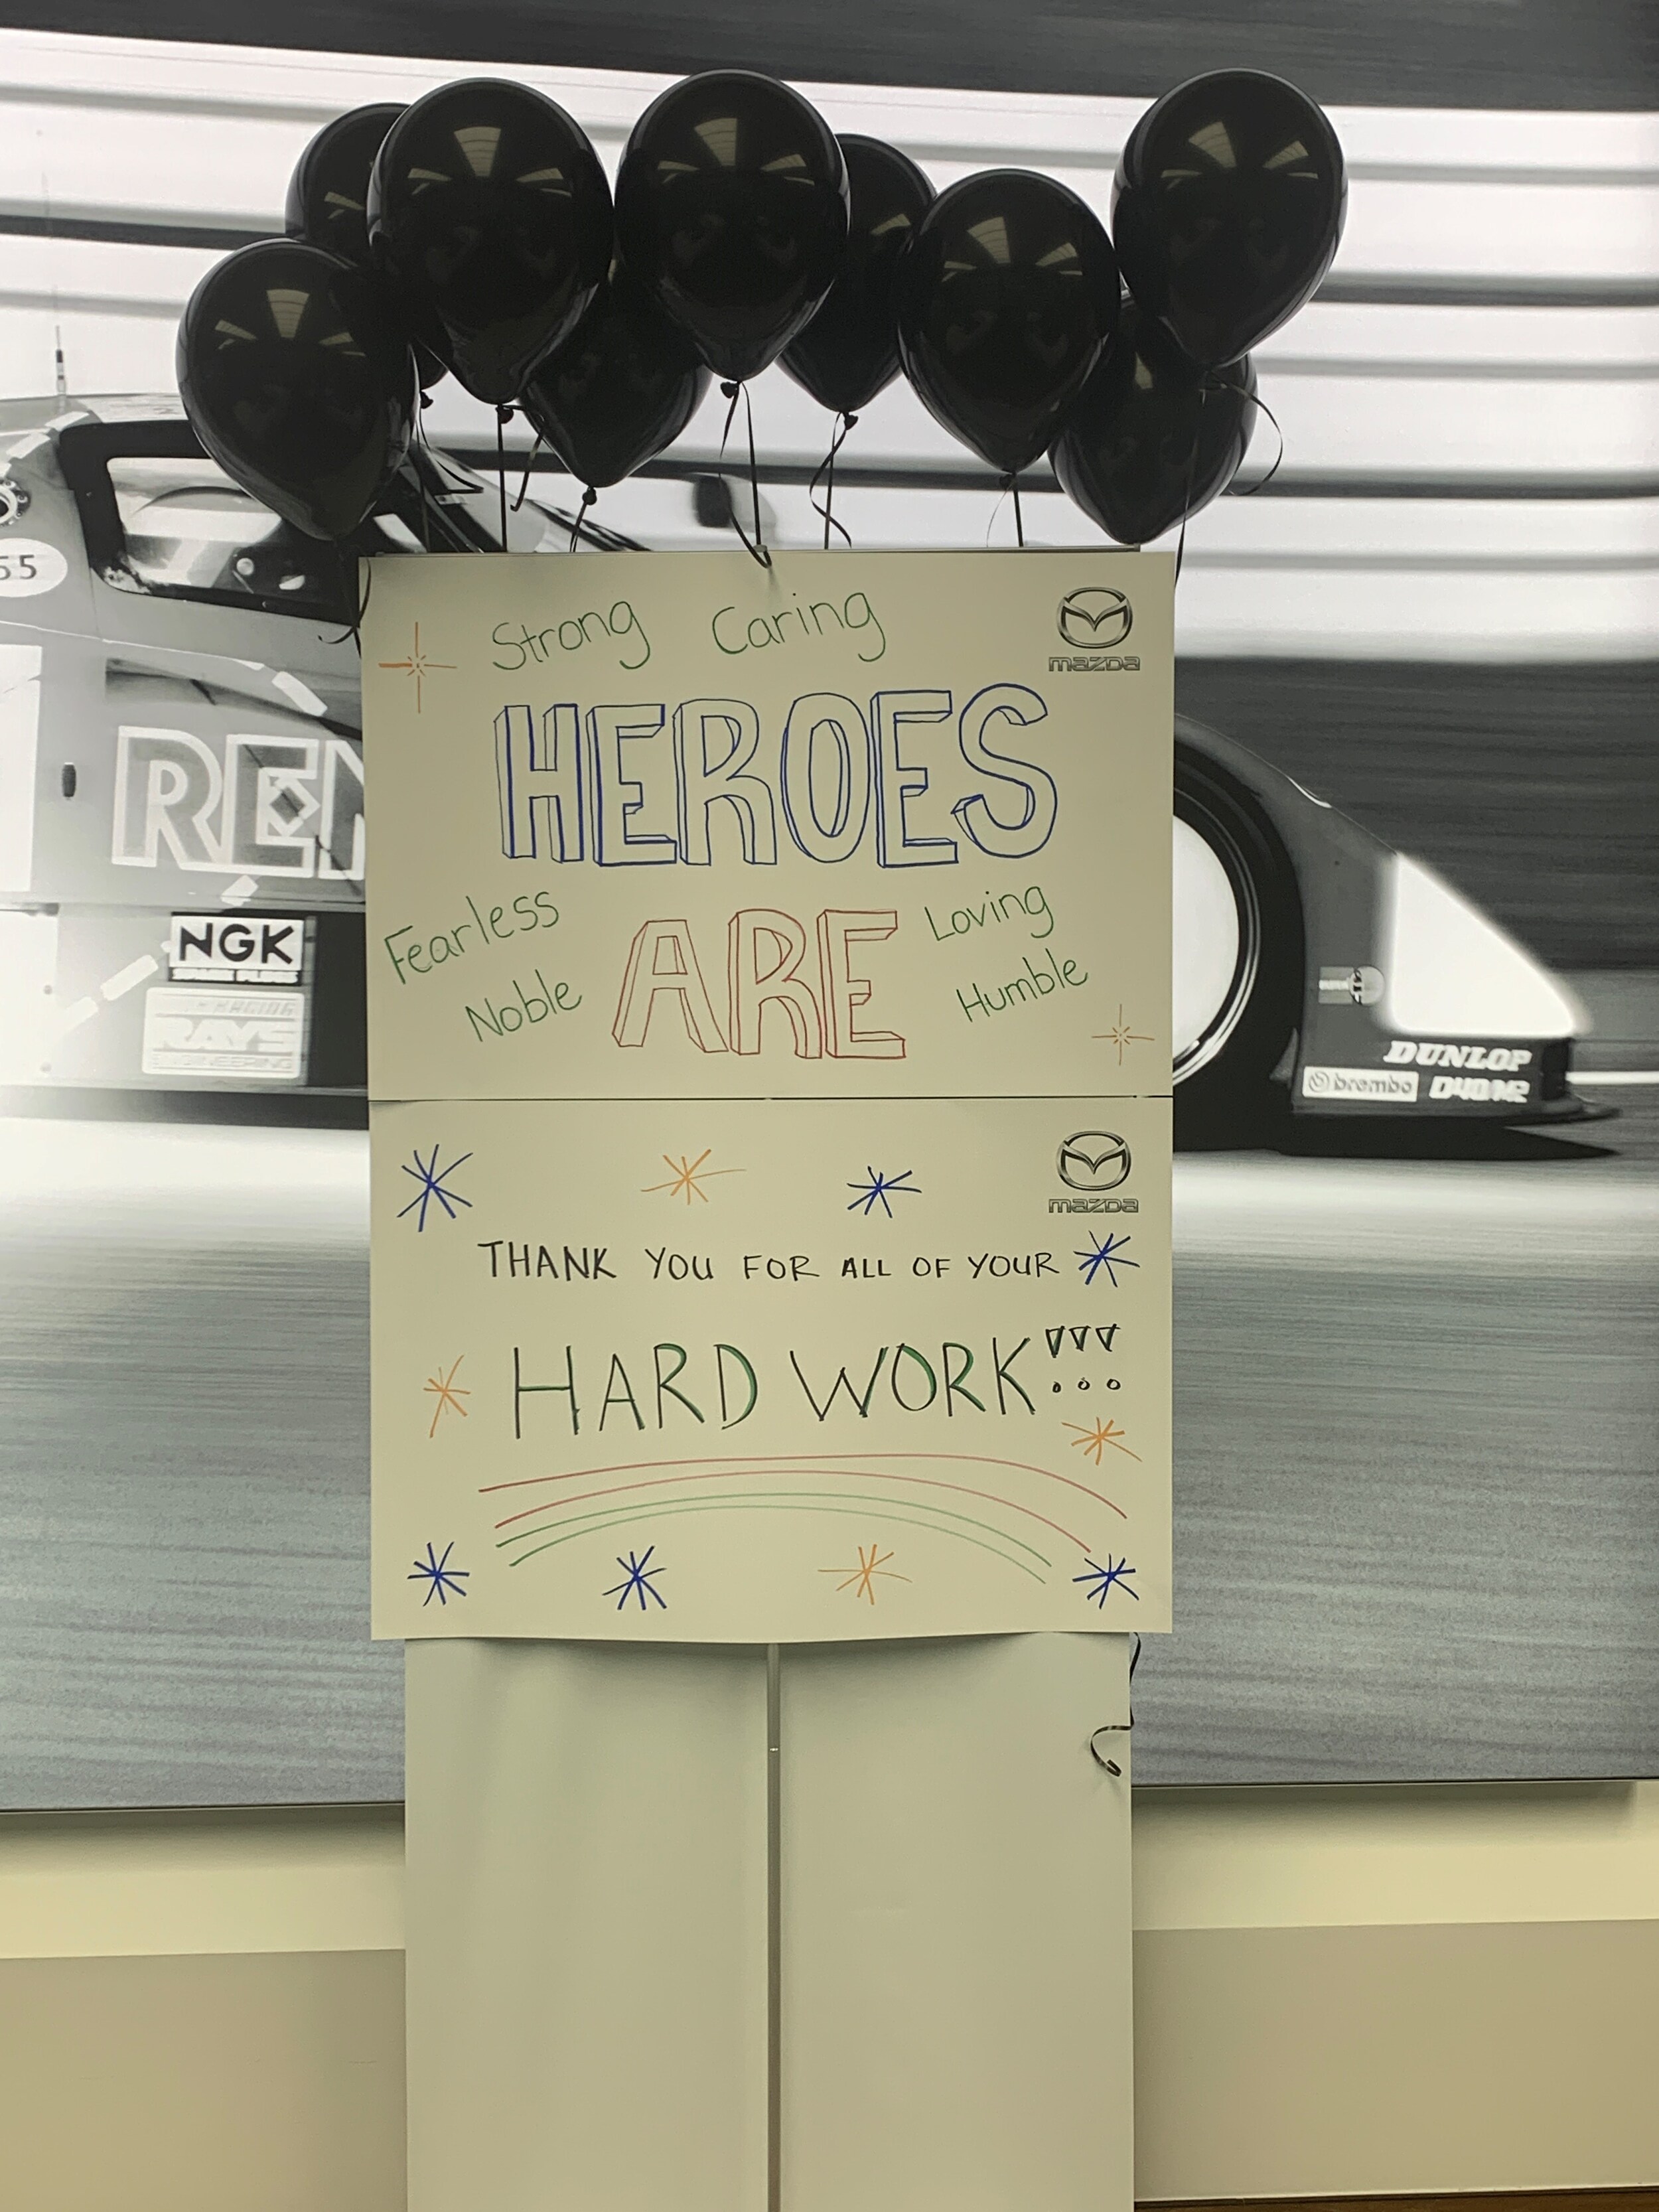 Strong Caring
mazda
HEROES
Fearless Loving
ARE
Noble Humble
mazda
THANK YOU FOR ALL OF YOUR
HARD WORK!!!
55
REN
NGK
SPARK PLUGS
RACING
RAYS
ENGINEERING
DUNLOP
brembo